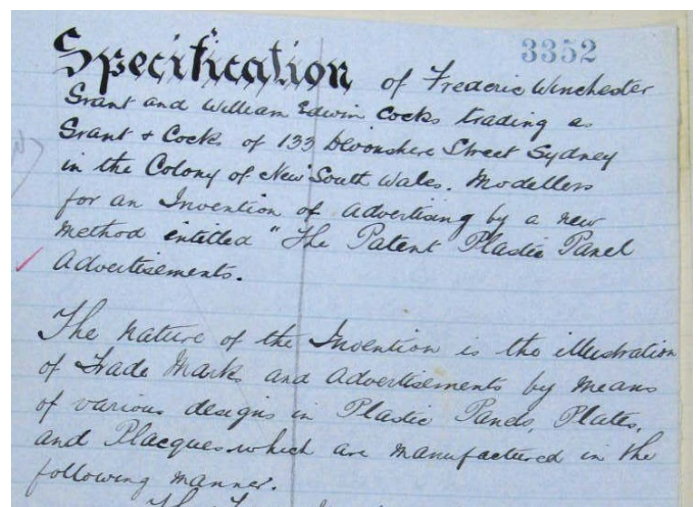 3352
Specification of Frederic Winchester
Grant and William Edwin Cocks trading as
Grant + Cocks of 133 Devonshire Street Sydney
in the Colony of New South Wales. Modellers
for an Invention of advertising by a new
method entitled "The Patent Plastic Panel
Advertisements.
The nature of the Invention is the illustration
of Trade Marks and Advertisements by means
of various designs in Plastic Panels, Plates,
and Placques which are manufactured in the
following manner.